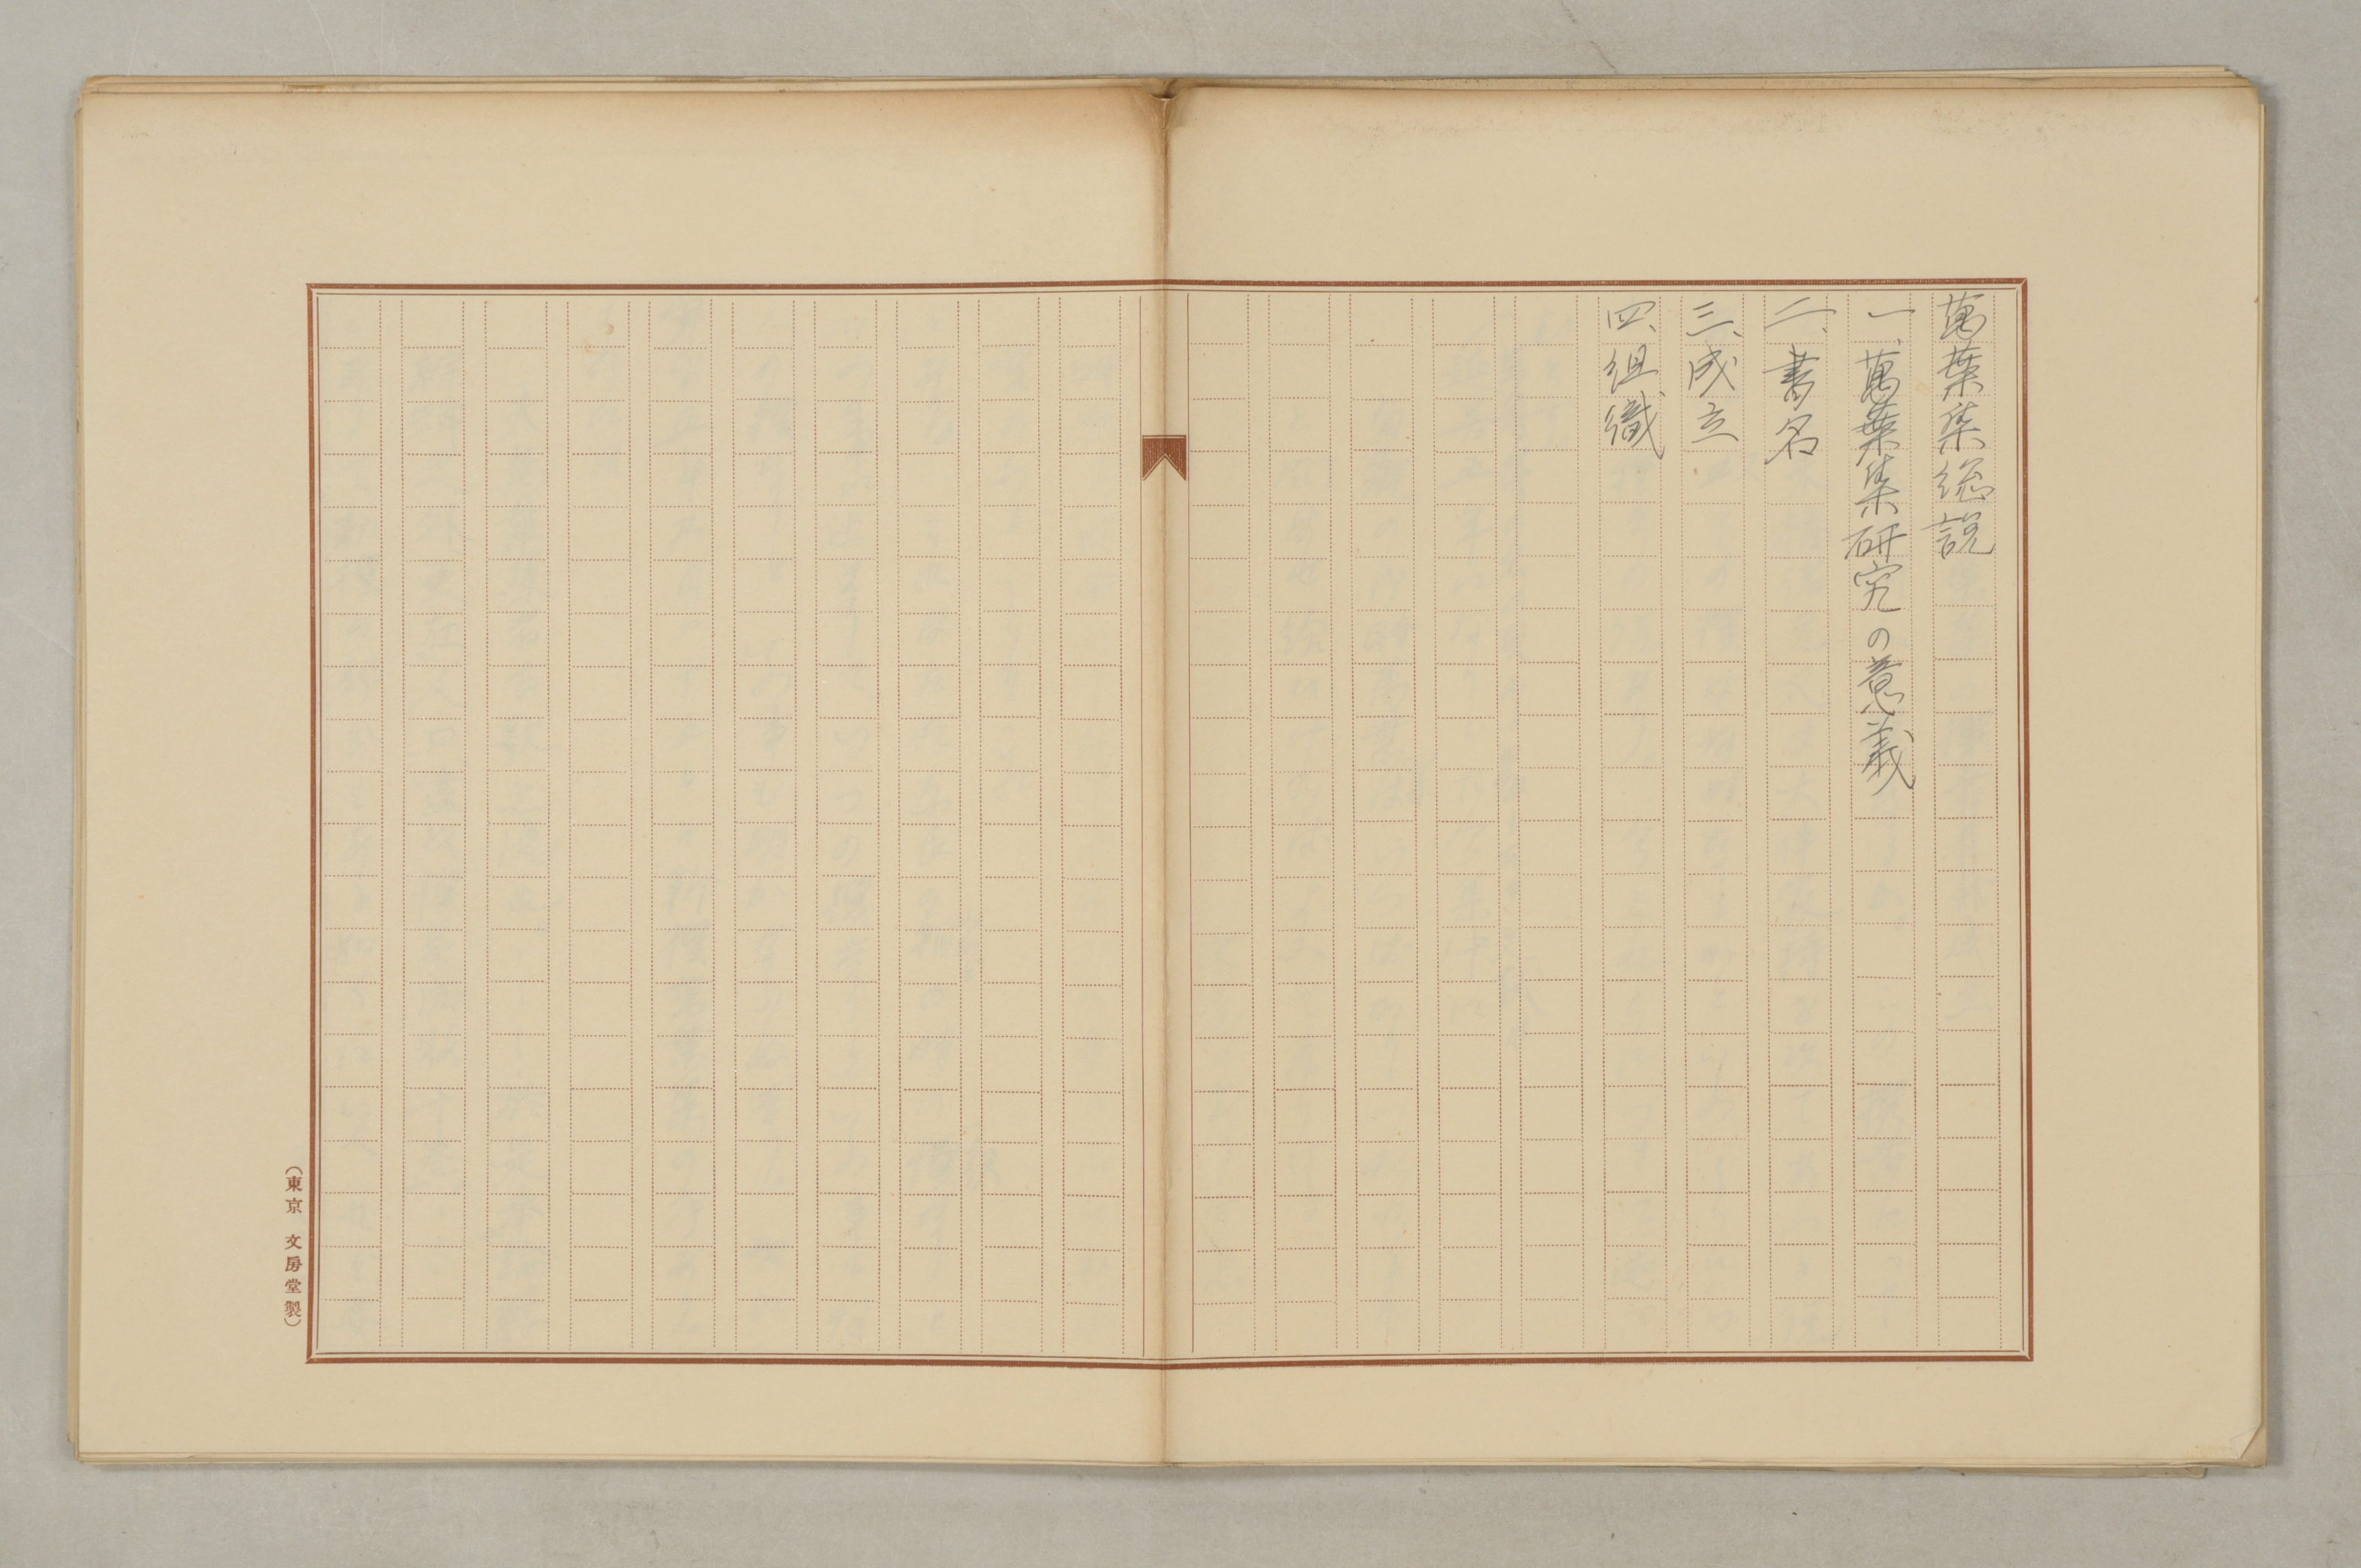 萬葉集総説
一、萬葉集研究の意義
二、書名
三、成立
四、組織
（東京 文房堂製）